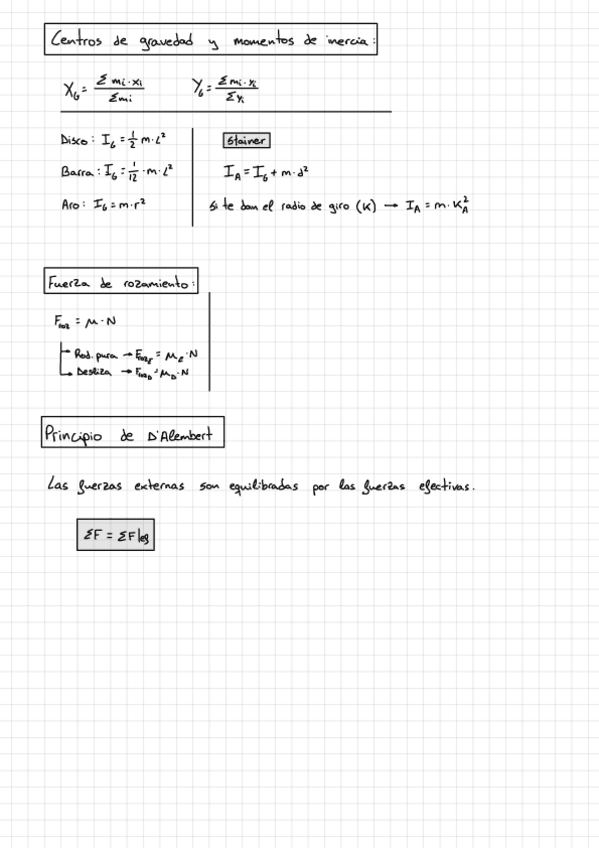 Centros de gravedad y momentos de inercia:
X_G = Σ mi·xi / Σ mi    Y_G = Σ mi·yi / Σ yi
Disco: I_G = 1/2 m·L²
Stainer
Barra: I_G = 1/12 · m · L²    I_A = I_G + m·d²
Aro: I_G = m·r²    Si te dan el radio de giro (K) → I_A = m·K_A²
Fuerza de rozamiento:
F_roz = μ·N
Rod. pura → F_roz_E = μ_E·N
Desliza → F_roz_D = μ_D·N
Principio de D'Alembert
Las fuerzas externas son equilibradas por las fuerzas efectivas.
ΣF = ΣF|eg